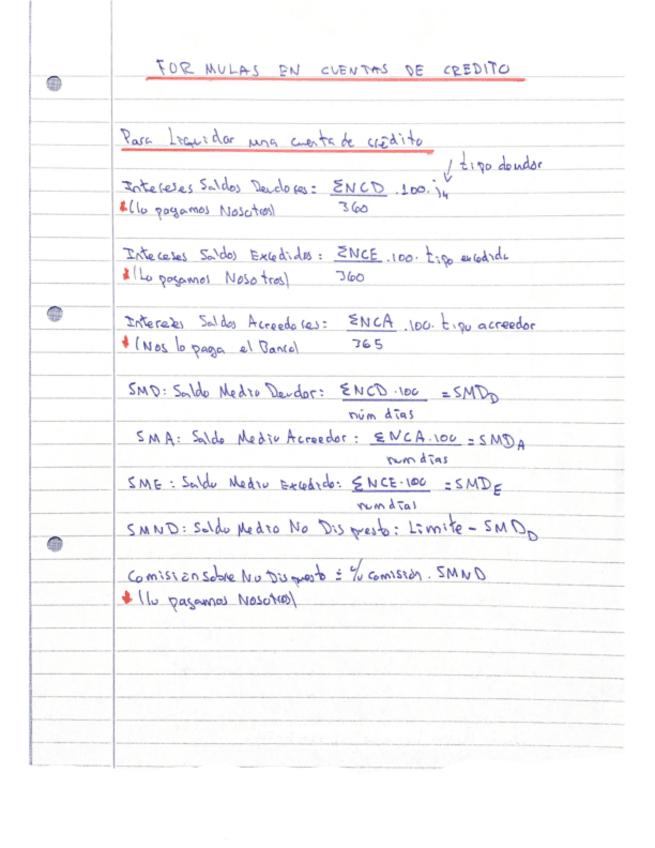 FORMULAS EN CUENTAS DE CREDITO
Para Liquidar una cuenta de crédito
tipo deudor
Intereses Saldos Deudores: ΣNCD .100. i4
360
(lo pagamos Nosotros)
Intereses Saldos Excedidos: ΣNCE .100. tipo excedido
360
(Lo pagamos Nosotros)
Intereses Saldos Acreedores: ΣNCA .100. tipo acreedor
365
(Nos lo paga el Banco)
SMD: Saldo Medio Deudor: ΣNCD.100 = SMD_D
núm días
SMA: Saldo Medio Acreedor: ΣNCA.100 = SMD_A
num días
SME: Saldo Medio Excedido: ΣNCE.100 = SMD_E
num días
SMND: Saldo Medio No Dispuesto: Limite - SMD_D
Comision sobre No Dispuesto = % comisión. SMND
(lo pagamos Nosotros)